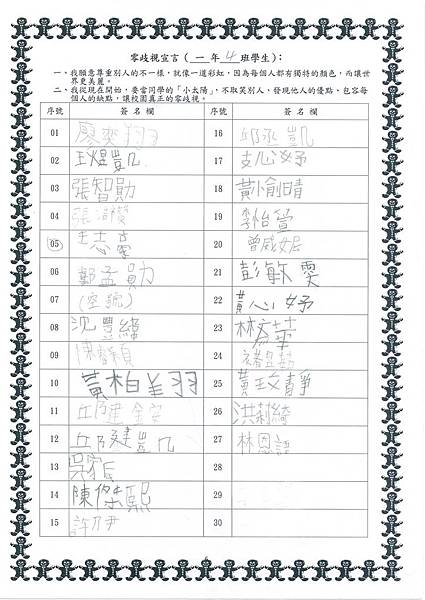 零歧視宣言（一年4班學生）：
一、我願意尊重別人的不一樣，就像一道彩虹，因為每個人都有獨特的顏色，而讓世
界更美麗。
二、我從現在開始，要當同學的「小太陽」，不取笑別人、發現他人的優點、包容每
個人的缺點，讓校園真正的零歧視。
序號 簽名欄 序號 簽名欄
01 廖奕翔 16 邱丞凱
02 王煜凱 17 彭心妤
03 張智勛 18 黃愉晴
04 張 19 李怡萱
05 王志豪 20 曾威妮
06 鄭孟勛 21 彭敏雯
07 (空號) 22 黃心妤
08 沈豐緯 23 林
09 陳 24
10 黃柏翔 25 黃玟靜
11 邱建 26 洪莉綺
12 邱建凱 27 林恩語
13 吳家 28
14 陳傑熙 29
15 許 30